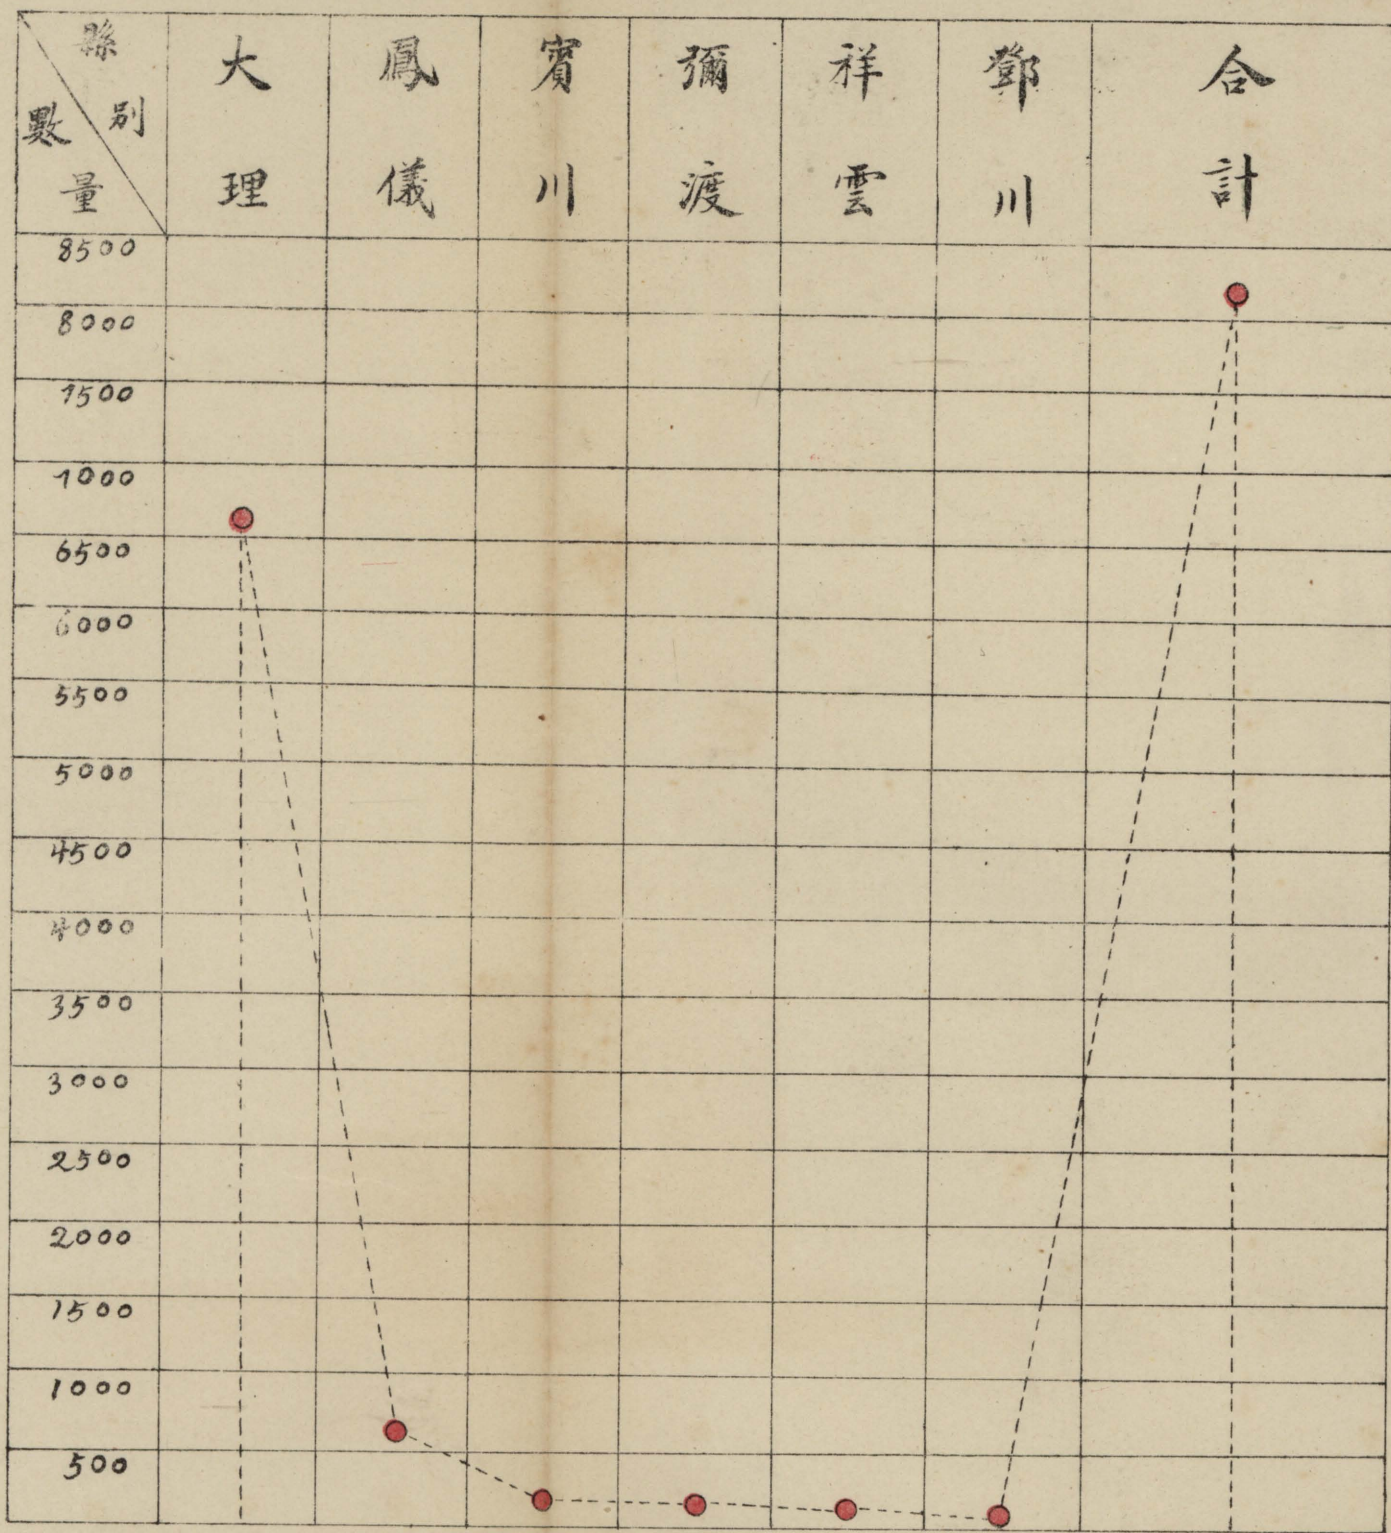 縣別
數量
大理
鳳儀
賓川
彌渡
祥雲
鄧川
合計
8500
8000
7500
7000
6500
6000
5500
5000
4500
4000
3500
3000
2500
2000
1500
1000
500